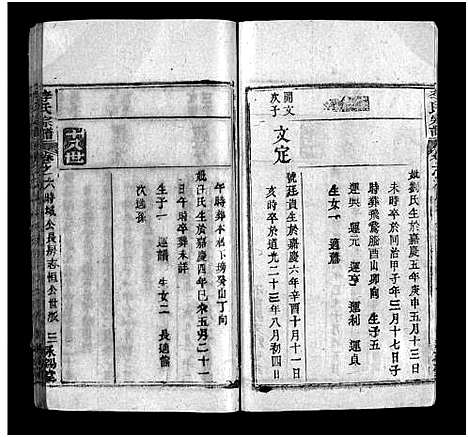 開文次子
文定
號廷貴生於嘉慶六年辛酉十月十一日
亥時卒於道光二十三年八月初四日
午時葬本祖下塝癸山丁向
妣汪氏生於嘉慶四年己未五月二十一
日丑時卒葬未詳
生子一 運謨 生女二 長適舊
次適孫
妣劉氏生於嘉慶五年庚申五月十三日
未時卒於同治甲子年三月十七日子
時葬飛鵞腦酉山卯向 生子五
運興 運元 運亨 運利 運貞
生女一 適
十八世
李氏宗譜
卷之六時域公長房志恒公世派
三